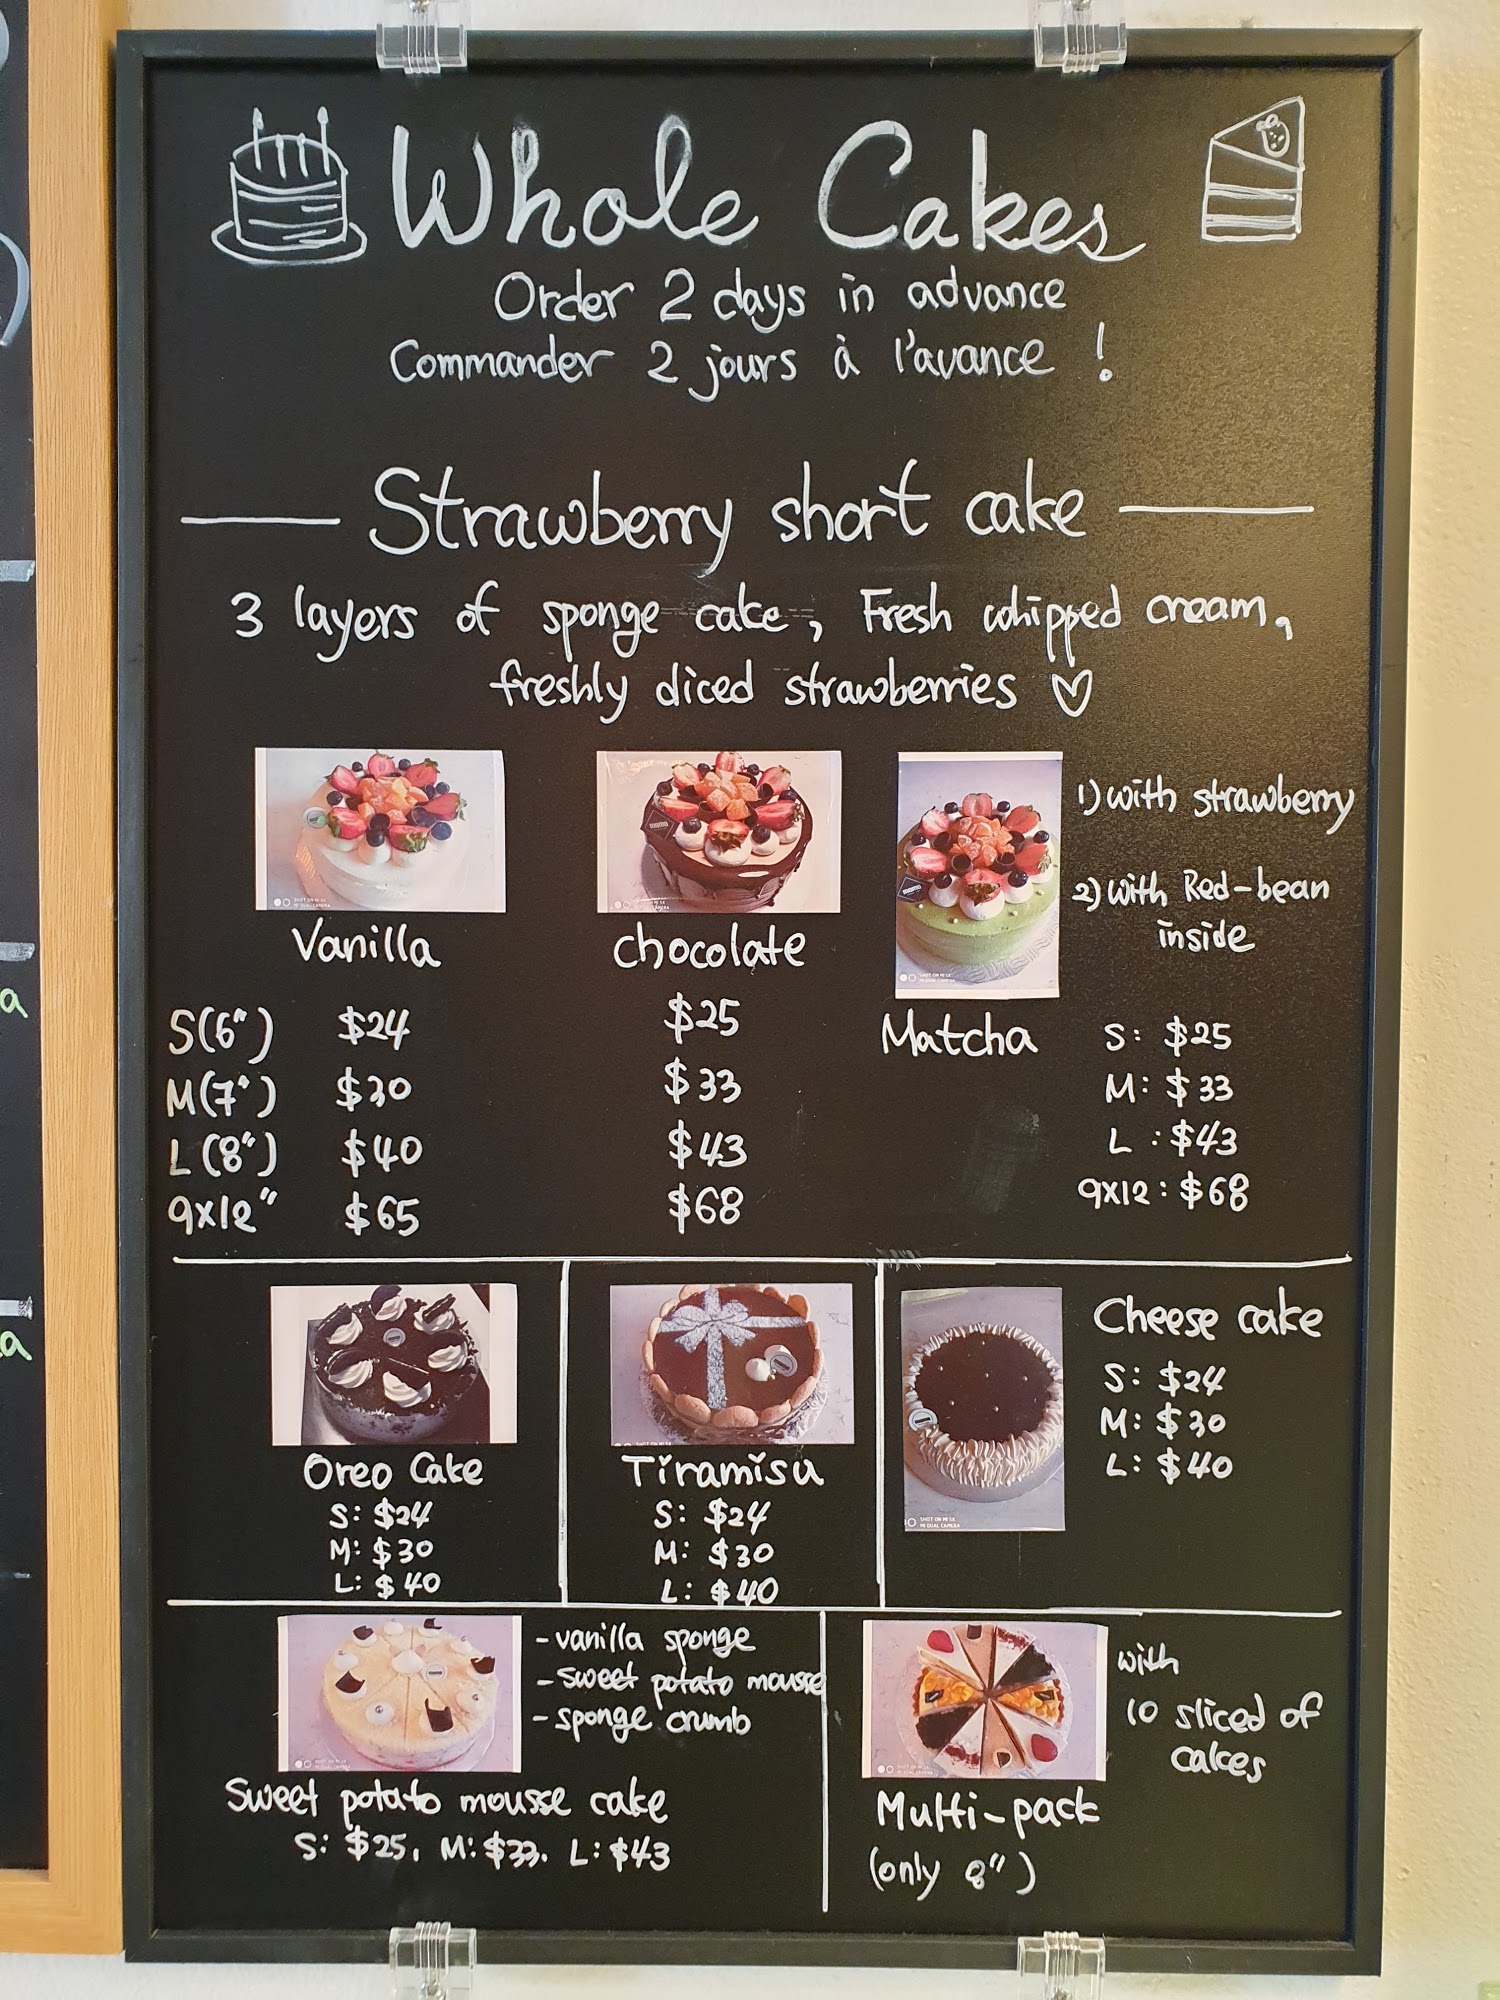 Whole Cakes
Order 2 days in advance
Commander 2 jours à l'avance !
Strawberry short cake
3 layers of sponge cake, Fresh whipped cream,
freshly diced strawberries ♡
1) with strawberry
2) with Red-bean
inside
Vanilla
chocolate
Matcha
S(6") $24 $25 S: $25
M(7") $30 $33 M: $33
L(8") $40 $43 L: $43
9x12" $65 $68 9x12: $68
Oreo Cake
S: $24
M: $30
L: $40
Tiramisu
S: $24
M: $30
L: $40
Cheese cake
S: $24
M: $30
L: $40
SHOT ON MI 5X
MI DUAL CAMERA
- vanilla sponge
- sweet potato mousse
- sponge crumb
Sweet potato mousse cake
S: $25, M: $33. L: $43
with
10 sliced of
cakes
Multi-pack
(only 8")